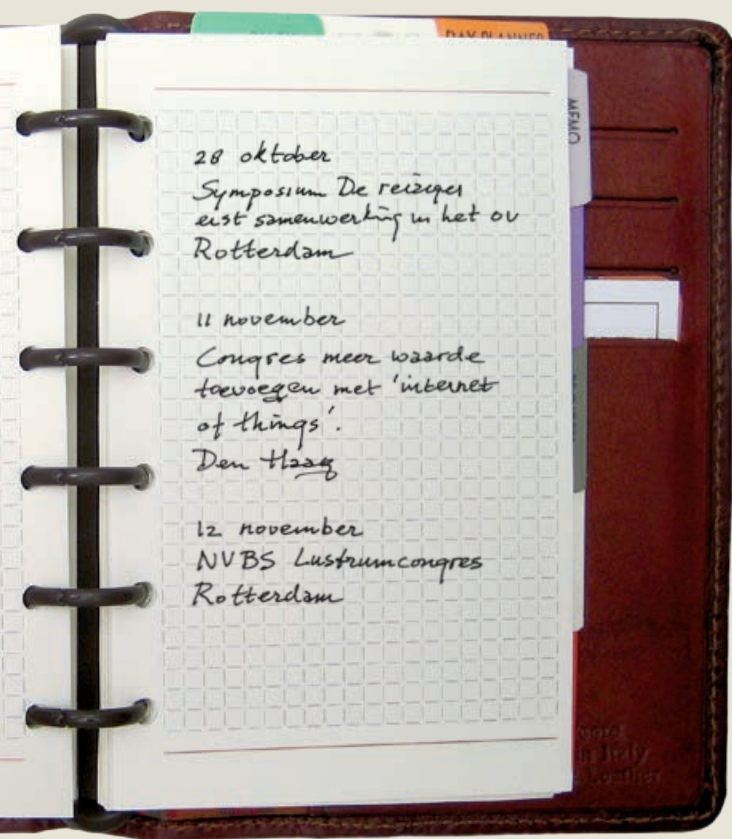 DAY PLANNER
MEMO
28 oktober
Symposium De reiziger
eist samenwerking in het ov
Rotterdam
11 november
Congres meer waarde
toevoegen met 'internet
of things'.
Den Haag
12 november
NVBS Lustrumcongres
Rotterdam
Italy
Leather